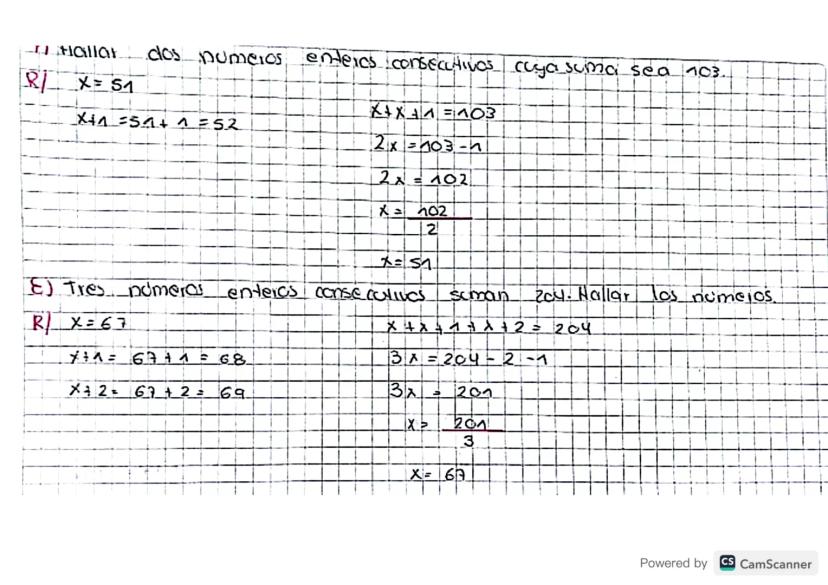 1) Hallar dos numeros enteros consecutivos cuya suma sea 103.
R/ x = 51
x+1 = 51 + 1 = 52
x+x+1 = 103
2x = 103 - 1
2x = 102
x = 102
2
x = 51
E) Tres números enteros consecutivos suman 204. Hallar los números.
R/ x = 67
x+1 = 67 + 1 = 68
x+2 = 67 + 2 = 69
x+x+1+x+2 = 204
3x = 204 - 2 - 1
3x = 201
x = 201
3
x = 67
Powered by CS CamScanner